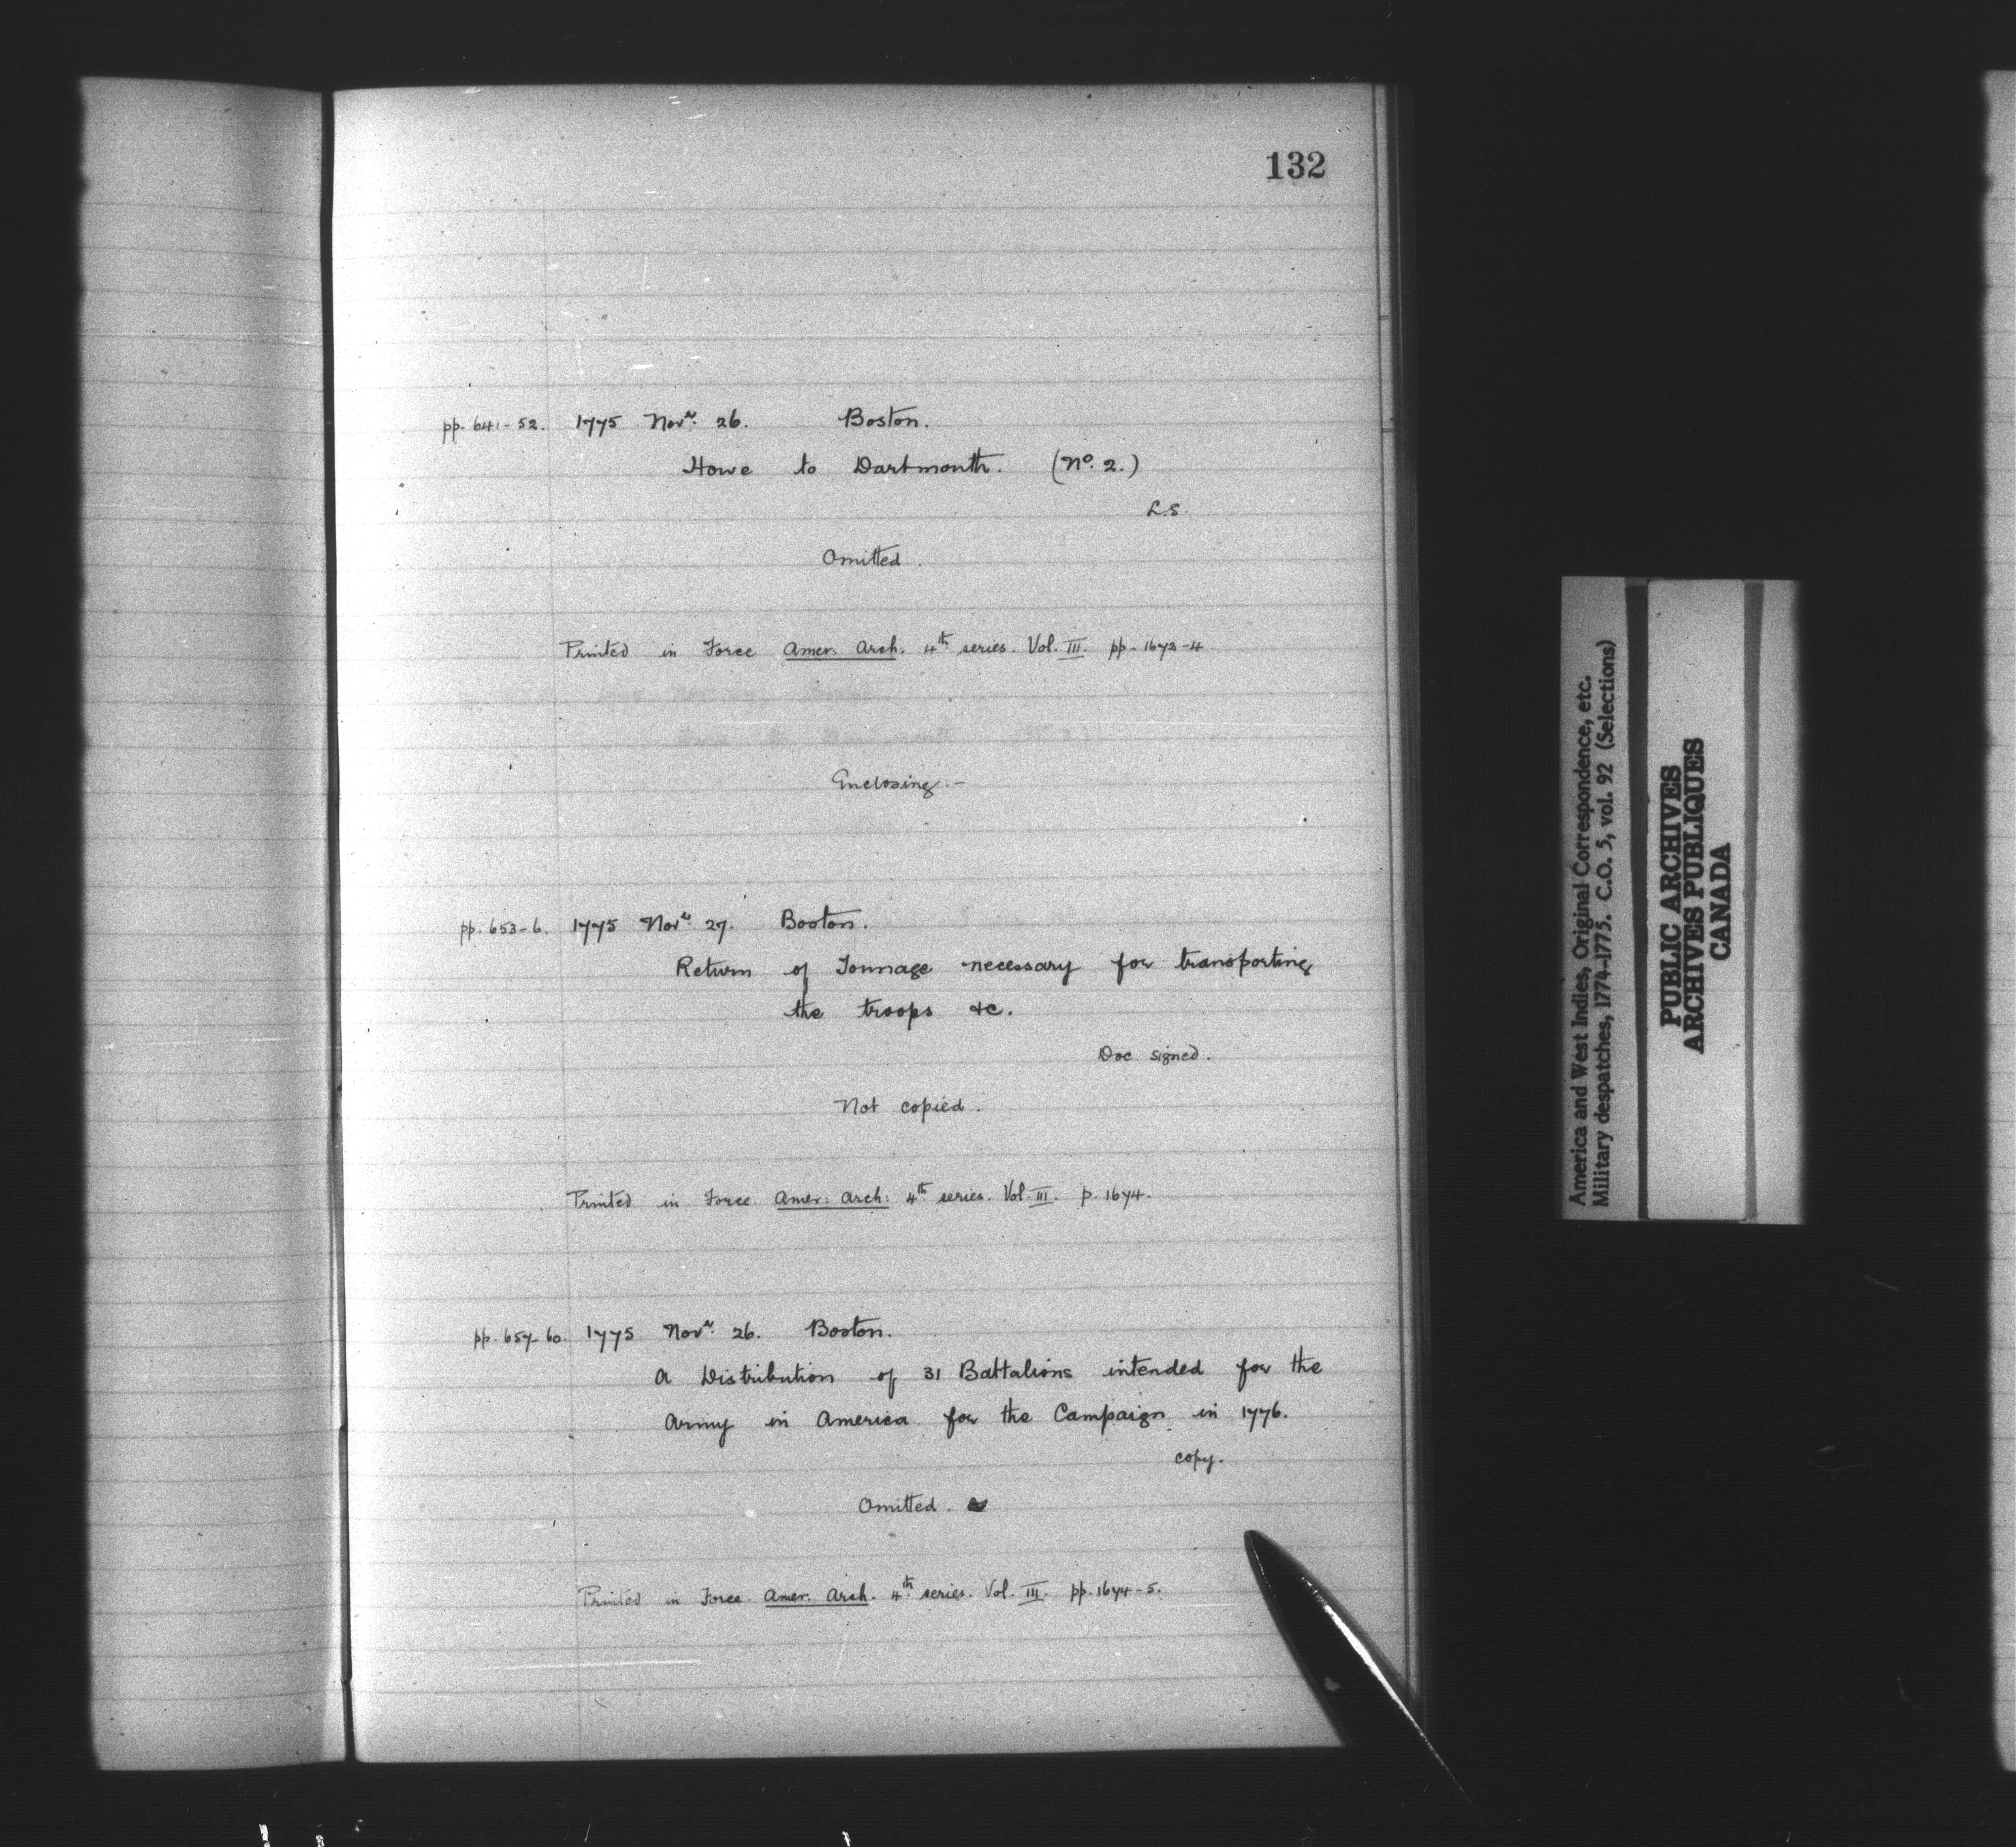 132
pp. 641-52. 1775 Novr. 26. Boston.
Howe to Dartmouth. (No. 2.)
L.S.
Omitted.
Printed in Force Amer. Arch. 4th series. Vol. III. pp. 1672-4.
Enclosing:-
pp. 653-6. 1775 Novr. 27. Boston.
Return of Tonnage necessary for transporting
the troops &c.
Doc signed.
Not copied.
Printed in Force. Amer: Arch: 4th series. Vol. III. p. 1674.
pp. 657-60. 1775 Novr. 26. Boston.
A Distribution of 31 Battalions intended for the
Army in America for the Campaign in 1776.
copy.
Omitted.
Printed in Force. Amer. Arch. 4th series. Vol. III. pp. 1674-5.
America and West Indies, Original Correspondence, etc.
Military despatches, 1774-1775. C.O. 5, vol. 92 (Selections)
PUBLIC ARCHIVES
ARCHIVES PUBLIQUES
CANADA